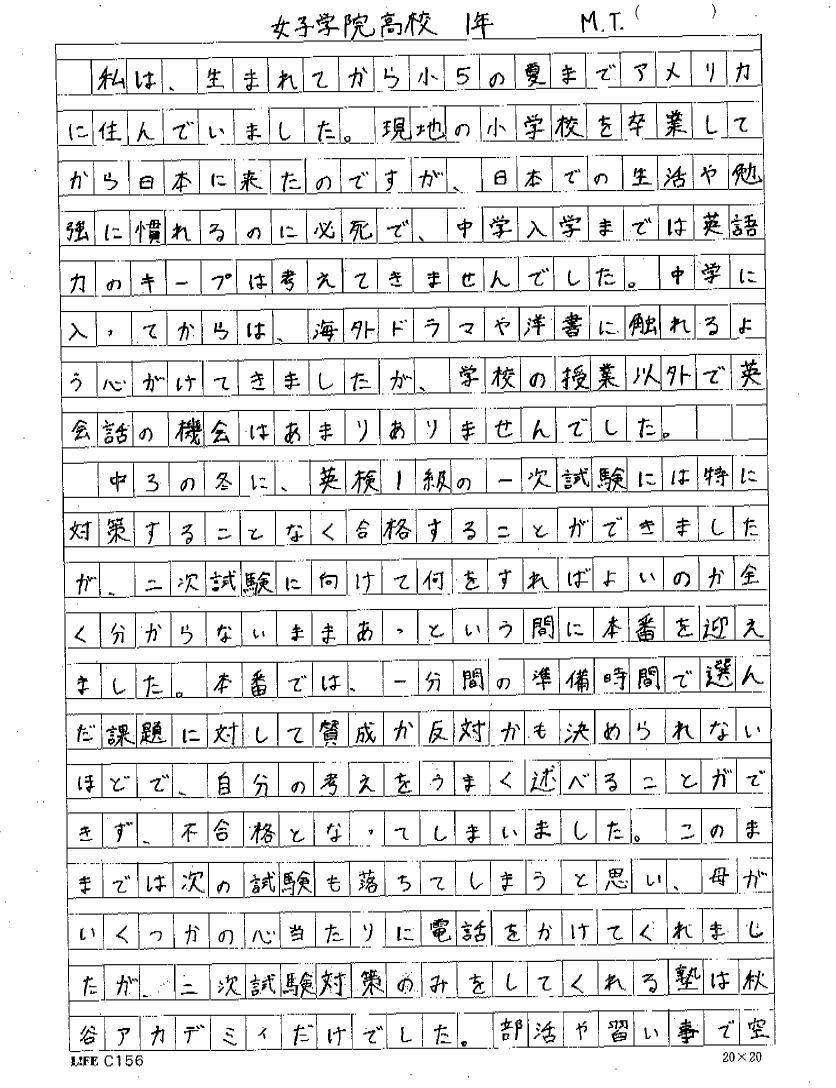 女子学院高校 1年 M.T.( )
私は、生まれてから小5の夏までアメリカ
に住んでいました。現地の小学校を卒業して
から日本に来たのですが、日本での生活や勉
強に慣れるのに必死で、中学入学までは英語
力のキープは考えてきませんでした。中学に
入ってからは、海外ドラマや洋書に触れるよ
う心がけてきましたが、学校の授業以外で英
会話の機会はあまりありませんでした。
中3の冬に、英検1級の一次試験には特に
対策することなく合格することができました
が、二次試験に向けて何をすればよいのか全
く分からないままあっという間に本番を迎え
ました。本番では、一分間の準備時間で選ん
だ課題に対して賛成か反対かも決められない
ほどで、自分の考えをうまく述べることがで
きず、不合格となってしまいました。このま
までは次の試験も落ちてしまうと思い、母が
いくつかの心当たりに電話をかけてくれまし
たが、二次試験対策のみをしてくれる塾は秋
谷アカデミィだけでした。部活や習い事で空
LIFE C156 20×20